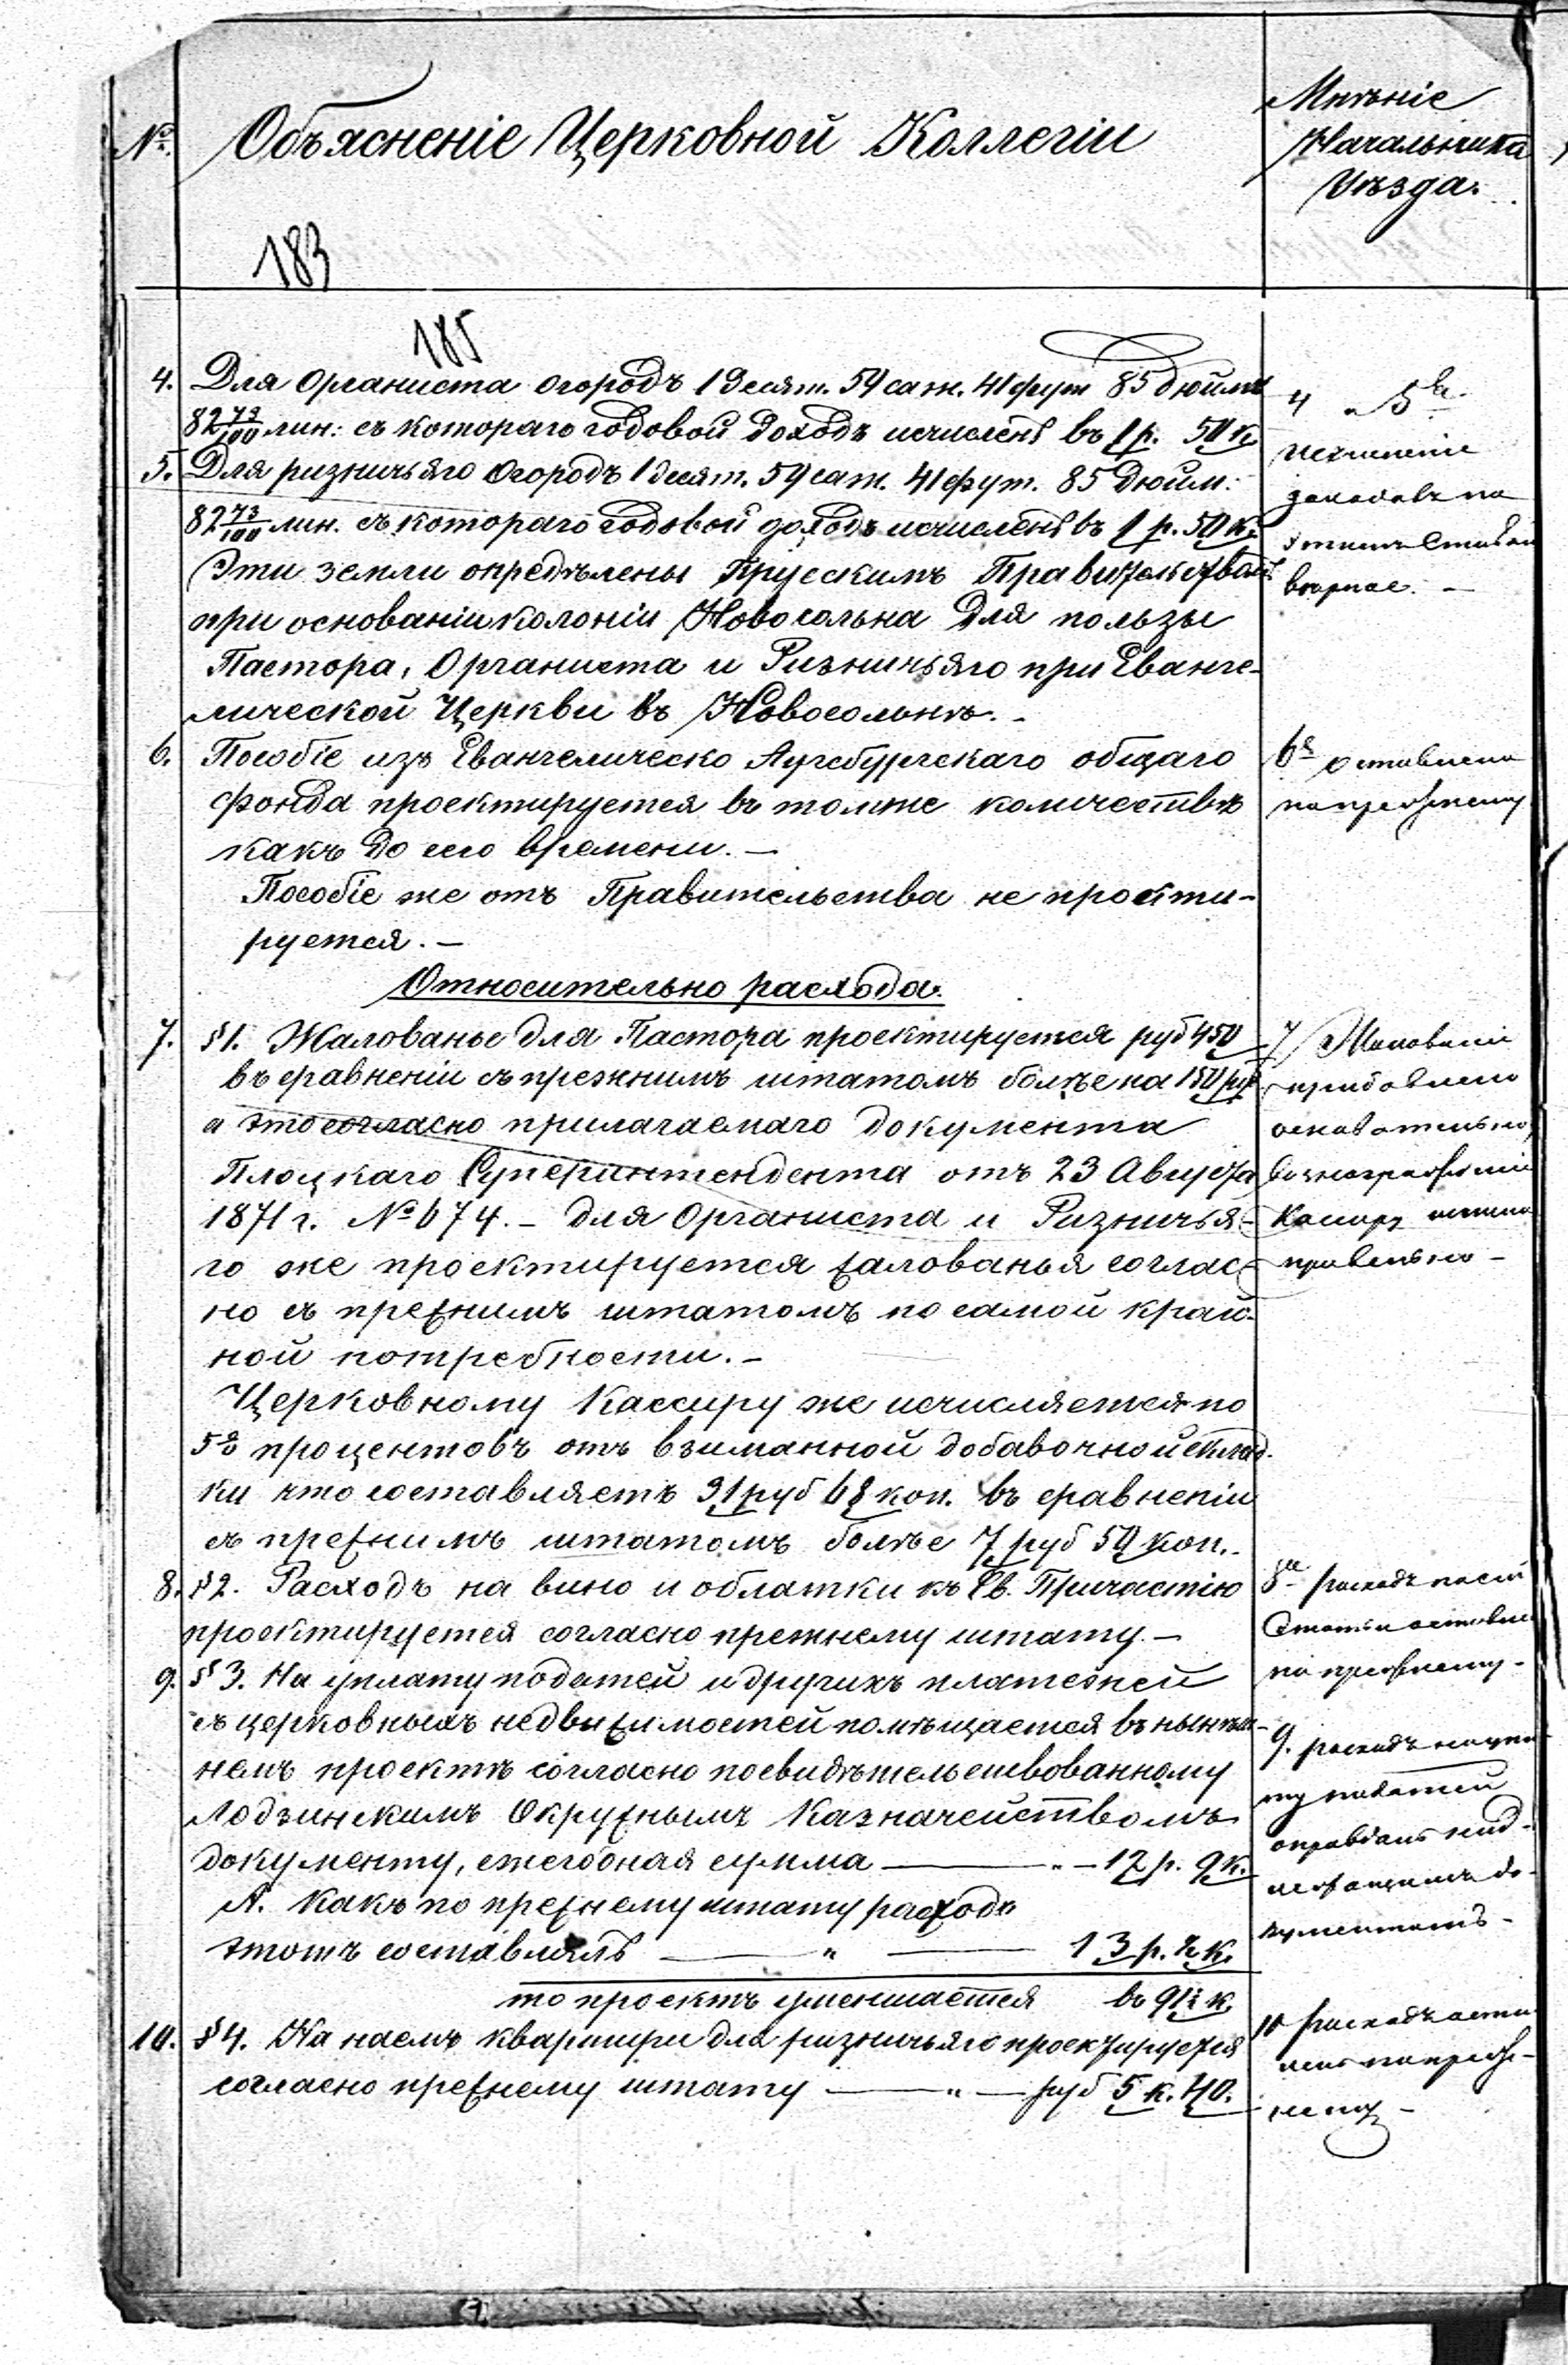 №
Объясненіе Церковной Коллегіи
Мнѣніе
Начальника
Уѣзда.
183
185
4. Для Органиста огородъ 1 десят. 54 саж. 41 фут 85 дюймъ
82 73/100 лин: съ котораго годовой доходъ исчисленъ въ 1 р. 50 к.
5. Для ризничьяго огородъ 1 десят. 54 саж. 41 фут. 85 дюйм:
82 73/100 лин. съ котораго годовой доходъ исчисленъ въ 1 р. 50 к.
Эти земли опредѣлены Прусскимъ Правительствомъ
при основаніи колоніи Новосольна для пользы
Пастора, Органиста и Ризничьяго при Еванге-
лической Церкви въ Новосольнѣ.-
6. Пособіе изъ Евангелическо Аугсбургскаго общаго
фонда проектируется въ томже количествѣ
какъ до сего времени.-
Пособіе же отъ Правительства не проекти-
руется.-
Относительно расхода.
7. §1. Жалованье для Пастора проектируется руб 450
въ сравненіи съ прежнимъ штатомъ болѣе на 150 руб
а это согласно прилагаемаго документа
Плоцкаго Суперинтендента отъ 23 Августа
1871 г. № 674.- для Органиста и Ризничья-
го же проектируется жалованья соглас-
но съ прежнимъ штатомъ по самой край-
ной потребности.-
Церковному Кассиру же исчисляется по
5 процентовъ отъ взиманной добавочной склад-
ки что составляетъ 31 руб 68 коп. въ сравненіи
съ прежнимъ штатомъ болѣе 7 руб 50 коп.-
8. §2. Расходъ на вино и облатки къ Св. Причастію
проектируется согласно прежнему штату.-
9. §3. На уплату податей и другихъ платежей
съ церковныхъ недвижимостей помѣщается въ нынѣш-
немъ проектѣ согласно посвидѣтельствованному
Лодзинскимъ Окружнымъ Казначействомъ
документу, ежегодная сумма — " — 12 р. 9 к.
А. какъ по прежнему штату расходъ
этотъ составлялъ — " — 13 р.
то проектъ уменшается въ
10. §4. На наемъ квартири для ризничьяго проектируется
согласно прежнему штату — " — руб 5 к. 40.
4 и 5
исчисленіе
доходовъ по
этимъ статьямъ
вѣрное.-
6 оставлено
попрежнему
7/ Жалованіе
прибавлено
основательно,
вознагражденіе
Касиру
правильно-
8 расходъ по сей
Статьи оставленъ
по прежнему-
9. расходъ на упла-
ту податей
оправданъ над-
лежащимъ до-
кументомъ-
10 расходъ остав-
ленъ попреж-
нему-